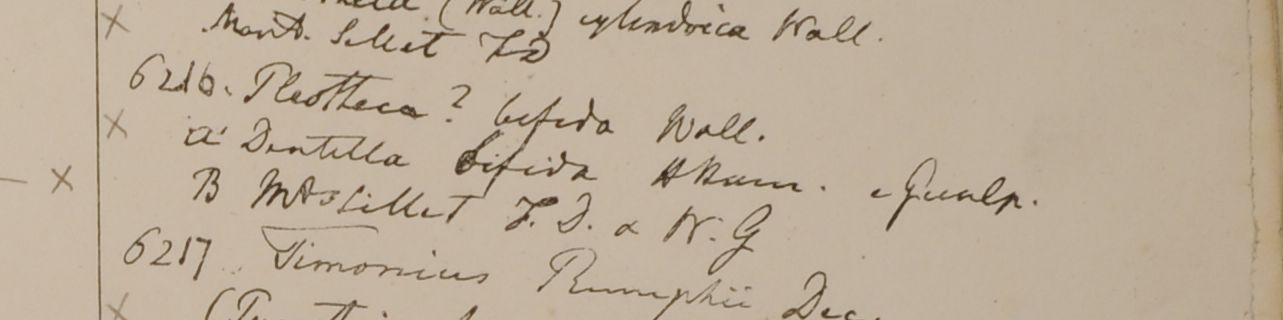 (Wall.) cylindrica Wall.
Mont. Sillet F.D
6216. Pleotheca? bifida Wall.
a Dentella bifida HHam. e Gualp.
B Mts Sillet F.D. & W.G
6217 Timonius Rumphii Dec.